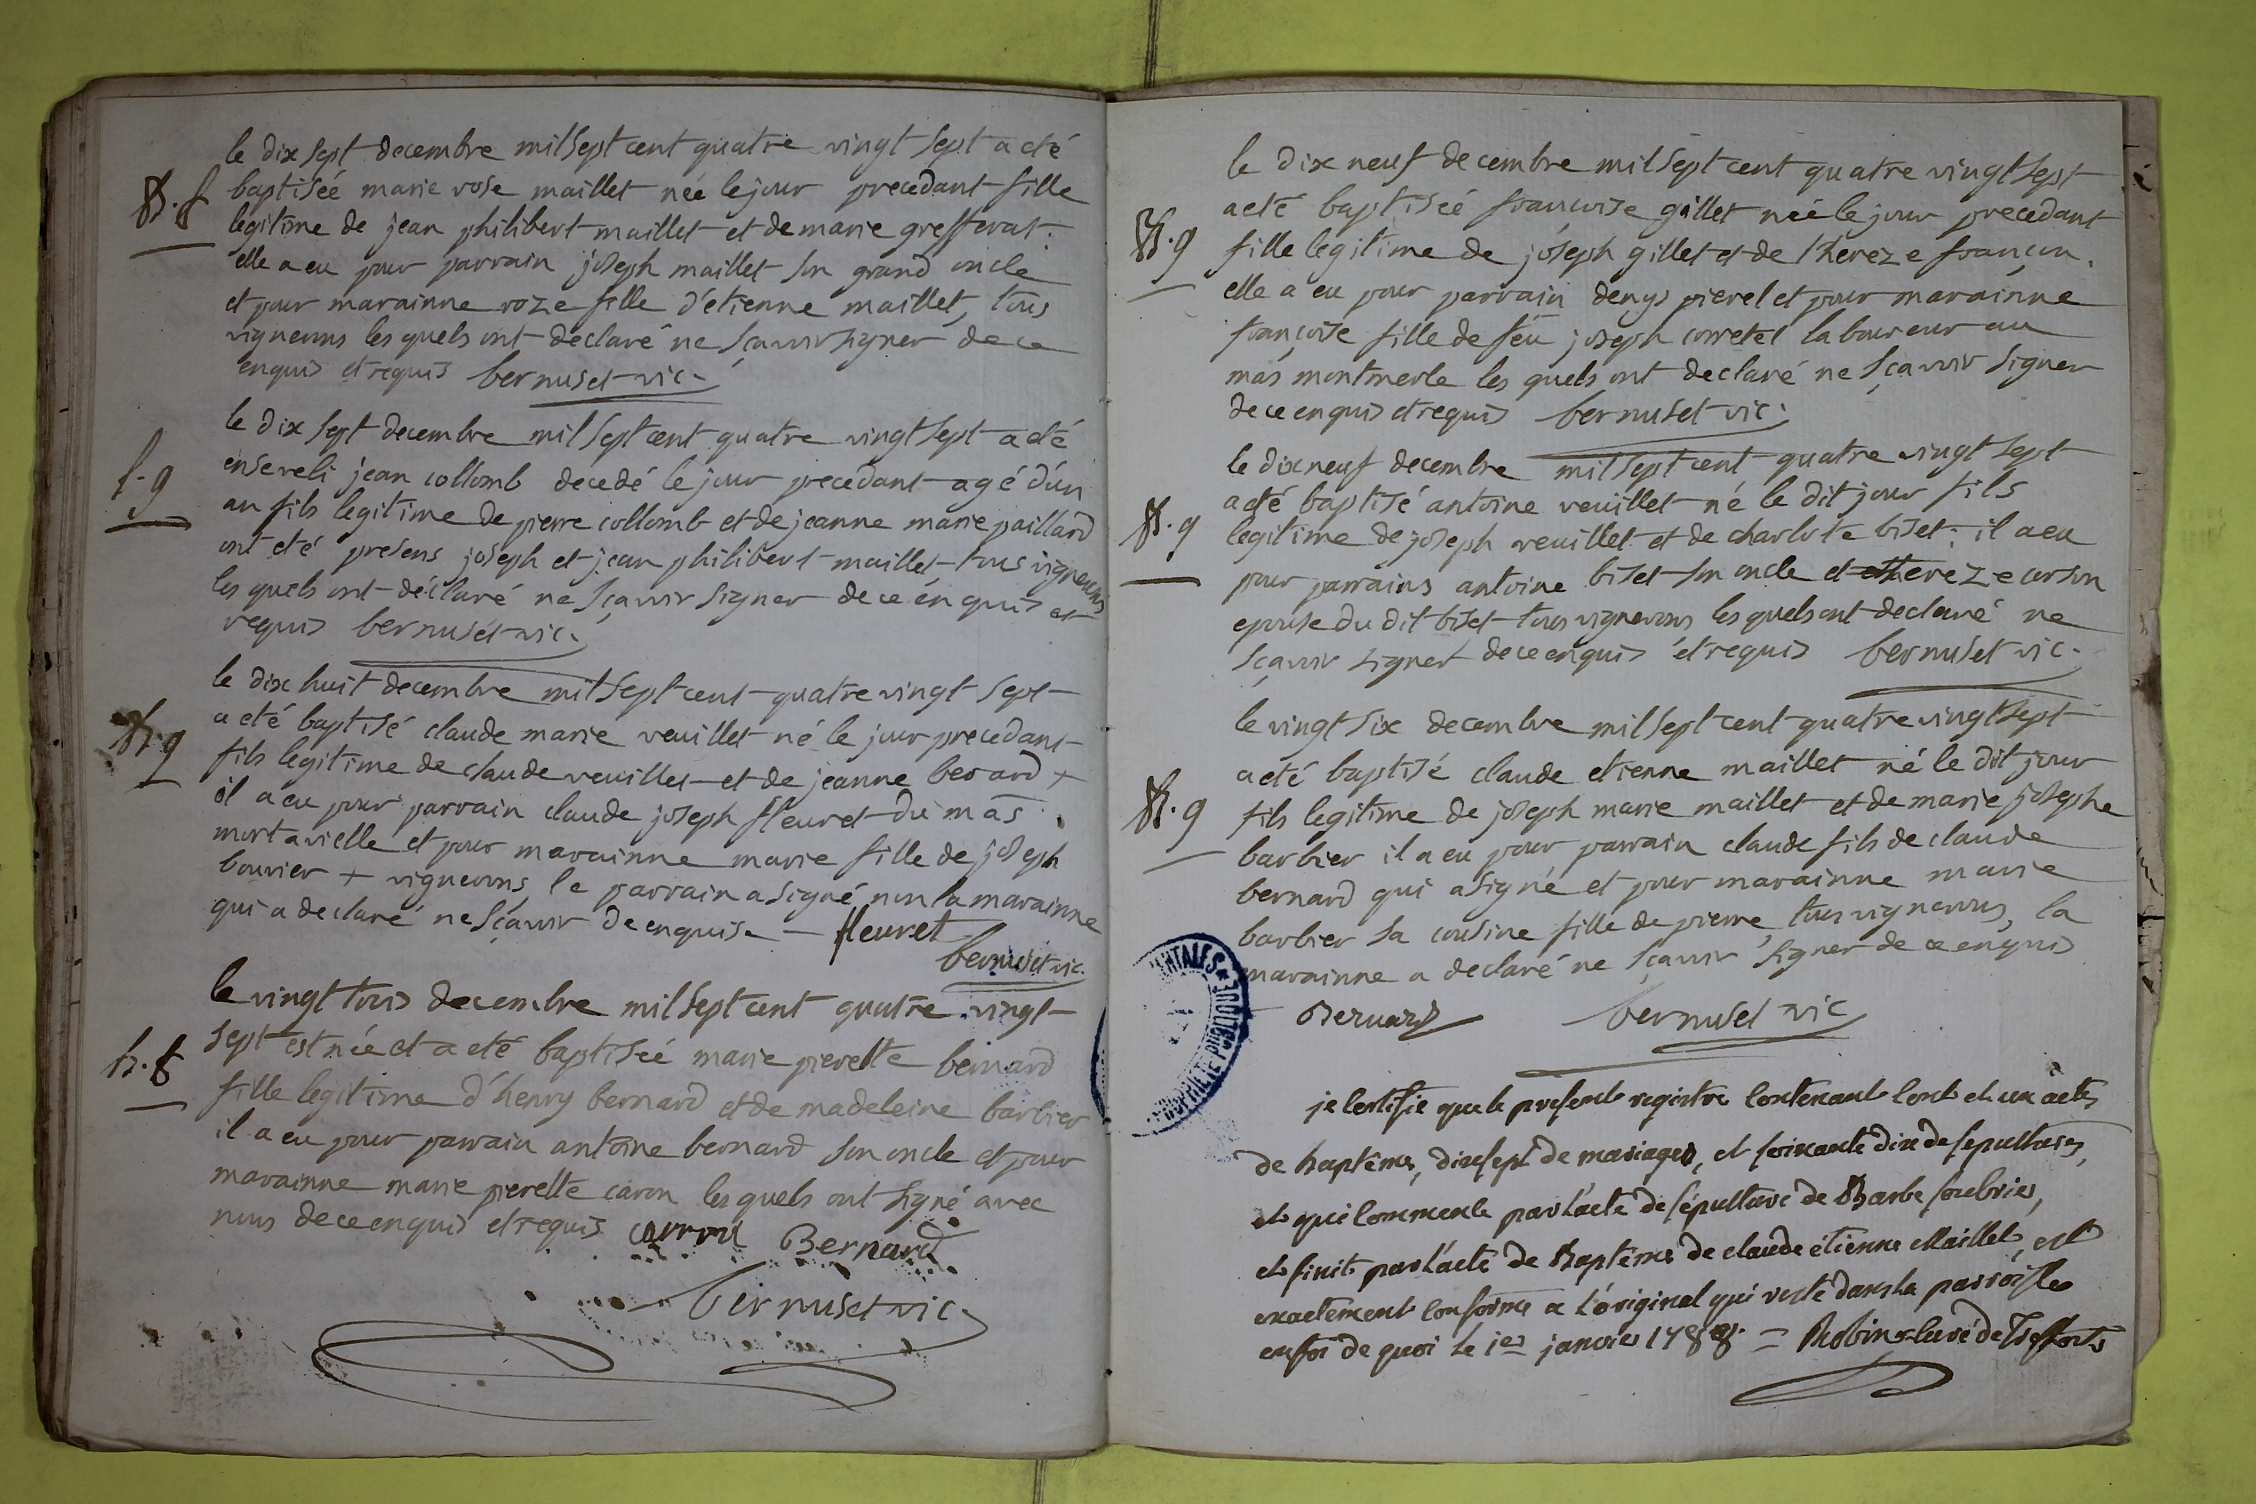 le dix sept decembre mil sept cent quatre vingt sept a eté
B. f baptiséé marie rose maillet née le jour precedant fille
legitime de jean philibert maillet et de marie grefferat.
elle a eu pour parrain joseph maillet son grand oncle
et pour marainne roze fille d'etienne maillet, tous
vignerons les quels ont declaré ne sçavoir signer de ce
enquis et requis bernuset vic.
le dix sept decembre mil sept cent quatre vingt sept a eté
enseveli jean collomb decedé le jour precedant agé d'un
S. g an fils legitime de pierre collomb et de jeanne marie paillard
ont eté presens joseph et jean philibert maillet tous vignerons
les quels ont declaré ne sçavoir signer de ce enquis et
requis bernuset vic.
le dix huit decembre mil sept cent quatre vingt sept
a eté baptisé claude marie veuillet né le jour precedant
B. g fils legitime de claude veuillet et de jeanne berard +
il a eu pour parrain claude joseph fleuret du mas
mortavielle et pour marainne marie fille de joseph
bouvier + vignerons, le parrain a signé non la marainne
qui a declaré ne sçavoir de enquise - fleuret
bernuset vic.
le vingt trois decembre mil sept cent quatre vingt
sept est née et a eté baptiséé marie pierette bernard
B. f fille legitime d'henry bernard et de madeleine barbier
il a eu pour parrain antoine bernard son oncle et pour
marainne marie pierette caron les quels ont signé avec
nous de ce enquis et requis carron Bernard
bernuset vic
le dix neuf decembre mil sept cent quatre vingt sept
a eté baptiséé françoise gillet néé le jour precedant
B. g fille legitime de joseph gillet et de thereze françon.
elle a eu pour parrain denys pierel et pour marainne
françoise fille de feu joseph corretel laboureur au
mas montmerle les quels ont declaré ne sçavoir signer
de ce enquis et requis bernuset vic.
le dix neuf decembre mil sept cent quatre vingt sept
a eté baptisé antoine veuillet né le dit jour fils
B. g legitime de joseph veuillet et de charlote biset; il a eu
pour parrains antoine biset son oncle et thereze corson
epouse du dit biset tous vignerons les quels ont declaré ne
sçavoir signer de ce enquis et requis bernuset vic.
le vingt six decembre mil sept cent quatre vingt sept
a eté baptisé claude etienne maillet né le dit jour
B. g fils legitime de joseph marie maillet et de marie josephe
barbier il a eu pour parrain claude fils de claude
bernard qui a signé et pour marainne marie
barbier sa cousine fille de pierre, tous vignerons, la
marainne a declaré ne sçavoir signer de ce enquis
Bernard bernuset vic
je certifie que le present registre contenant cent et un actes
de baptêmes, dixsept de mariages, et soixante dix de sepultures,
et qui commence par l'acte de sépulture de Barbe
et finit par l'acte de Baptême de claude étienne Maillet, est
exactement conforme a l'original qui reste dans la parroisse
en foi de quoi le 1er janvier 1788. = Robin curé de Treffort